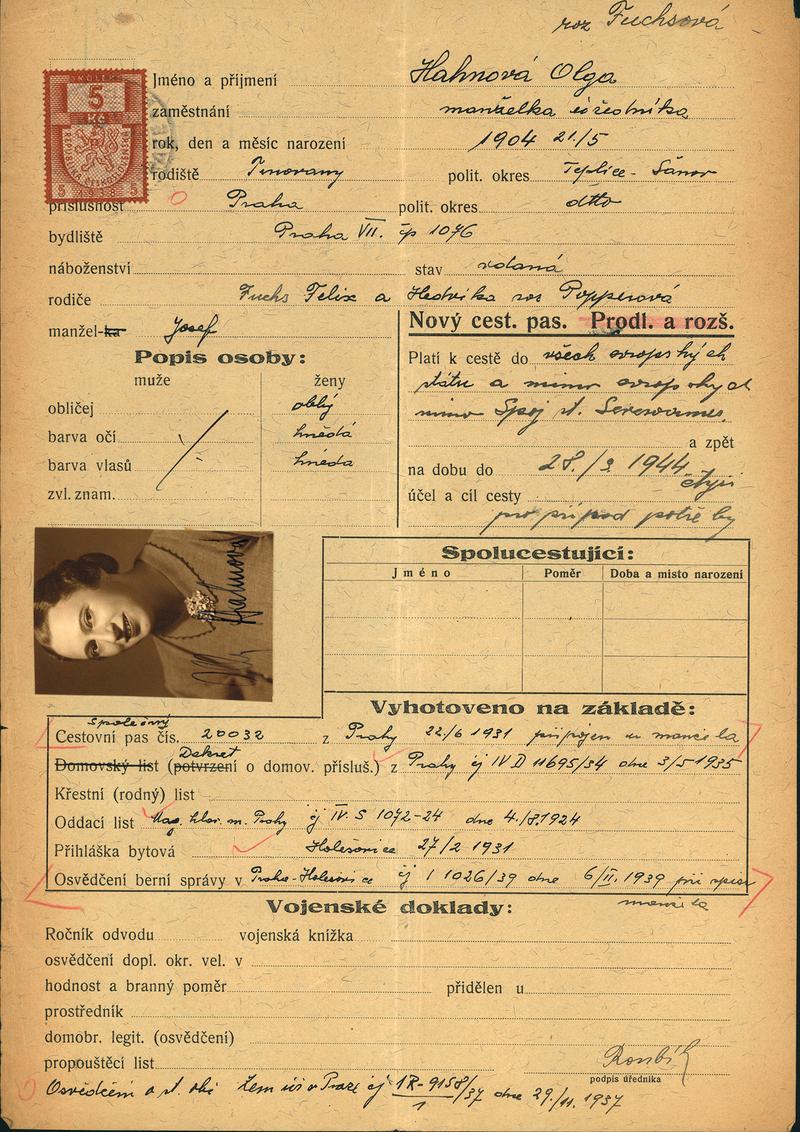 roz Fuchsová
KOLEK
5
Kč
5 5
Jméno a příjmení Hahnová Olga
zaměstnání manželka úředníka
rok, den a měsíc narození 1904 21/5
rodiště Trnovany polit. okres Teplice - Šanov
příslušnost Praha polit. okres dtto
bydliště Praha VII. čp 1076
náboženství stav vdaná
rodiče Fuchs Felix a Hedvika roz Popperová
manžel-ka Josef
Nový cest. pas. Prodl. a rozš.
Popis osoby:
muže ženy
obličej oblý
barva očí hnědá
barva vlasů hnědá
zvl. znam.
Platí k cestě do všech evropských
států a mimo evropských
mimo Spoj st. Severoamer.
a zpět
na dobu do 28./3 1944 čtyři
účel a cíl cesty
pro případ potřeby
Spolucestující:
Jméno Poměr Doba a místo narození
Hahnová
Vyhotoveno na základě:
Společný
Cestovní pas čís. 20032 z Prahy 22./6 1931 připojen u manžela
Dekret
Domovský list (potvrzení o domov. přísluš.) z Prahy čj IV D 11695/34 dne 3/5 1935
Křestní (rodný) list
Oddací list Mag. hlav. m. Prahy čj IV. S 1072-24 dne 4./8.1924
Přihláška bytová Holešovice 27/2 1931
Osvědčení berní správy v Praha-Holešovice čj I 1026/39 dne 6/II. 1939 při spisu
manžela
Vojenské doklady:
Ročník odvodu vojenská knížka
osvědčení dopl. okr. vel. v
hodnost a branný poměr přidělen u
prostředník
domobr. legit. (osvědčení)
propouštěcí list
podpis úředníka
Osvědčení o st. obč Zem úř v Praze čj 1R-9158/37 dne 29./11. 1937
1